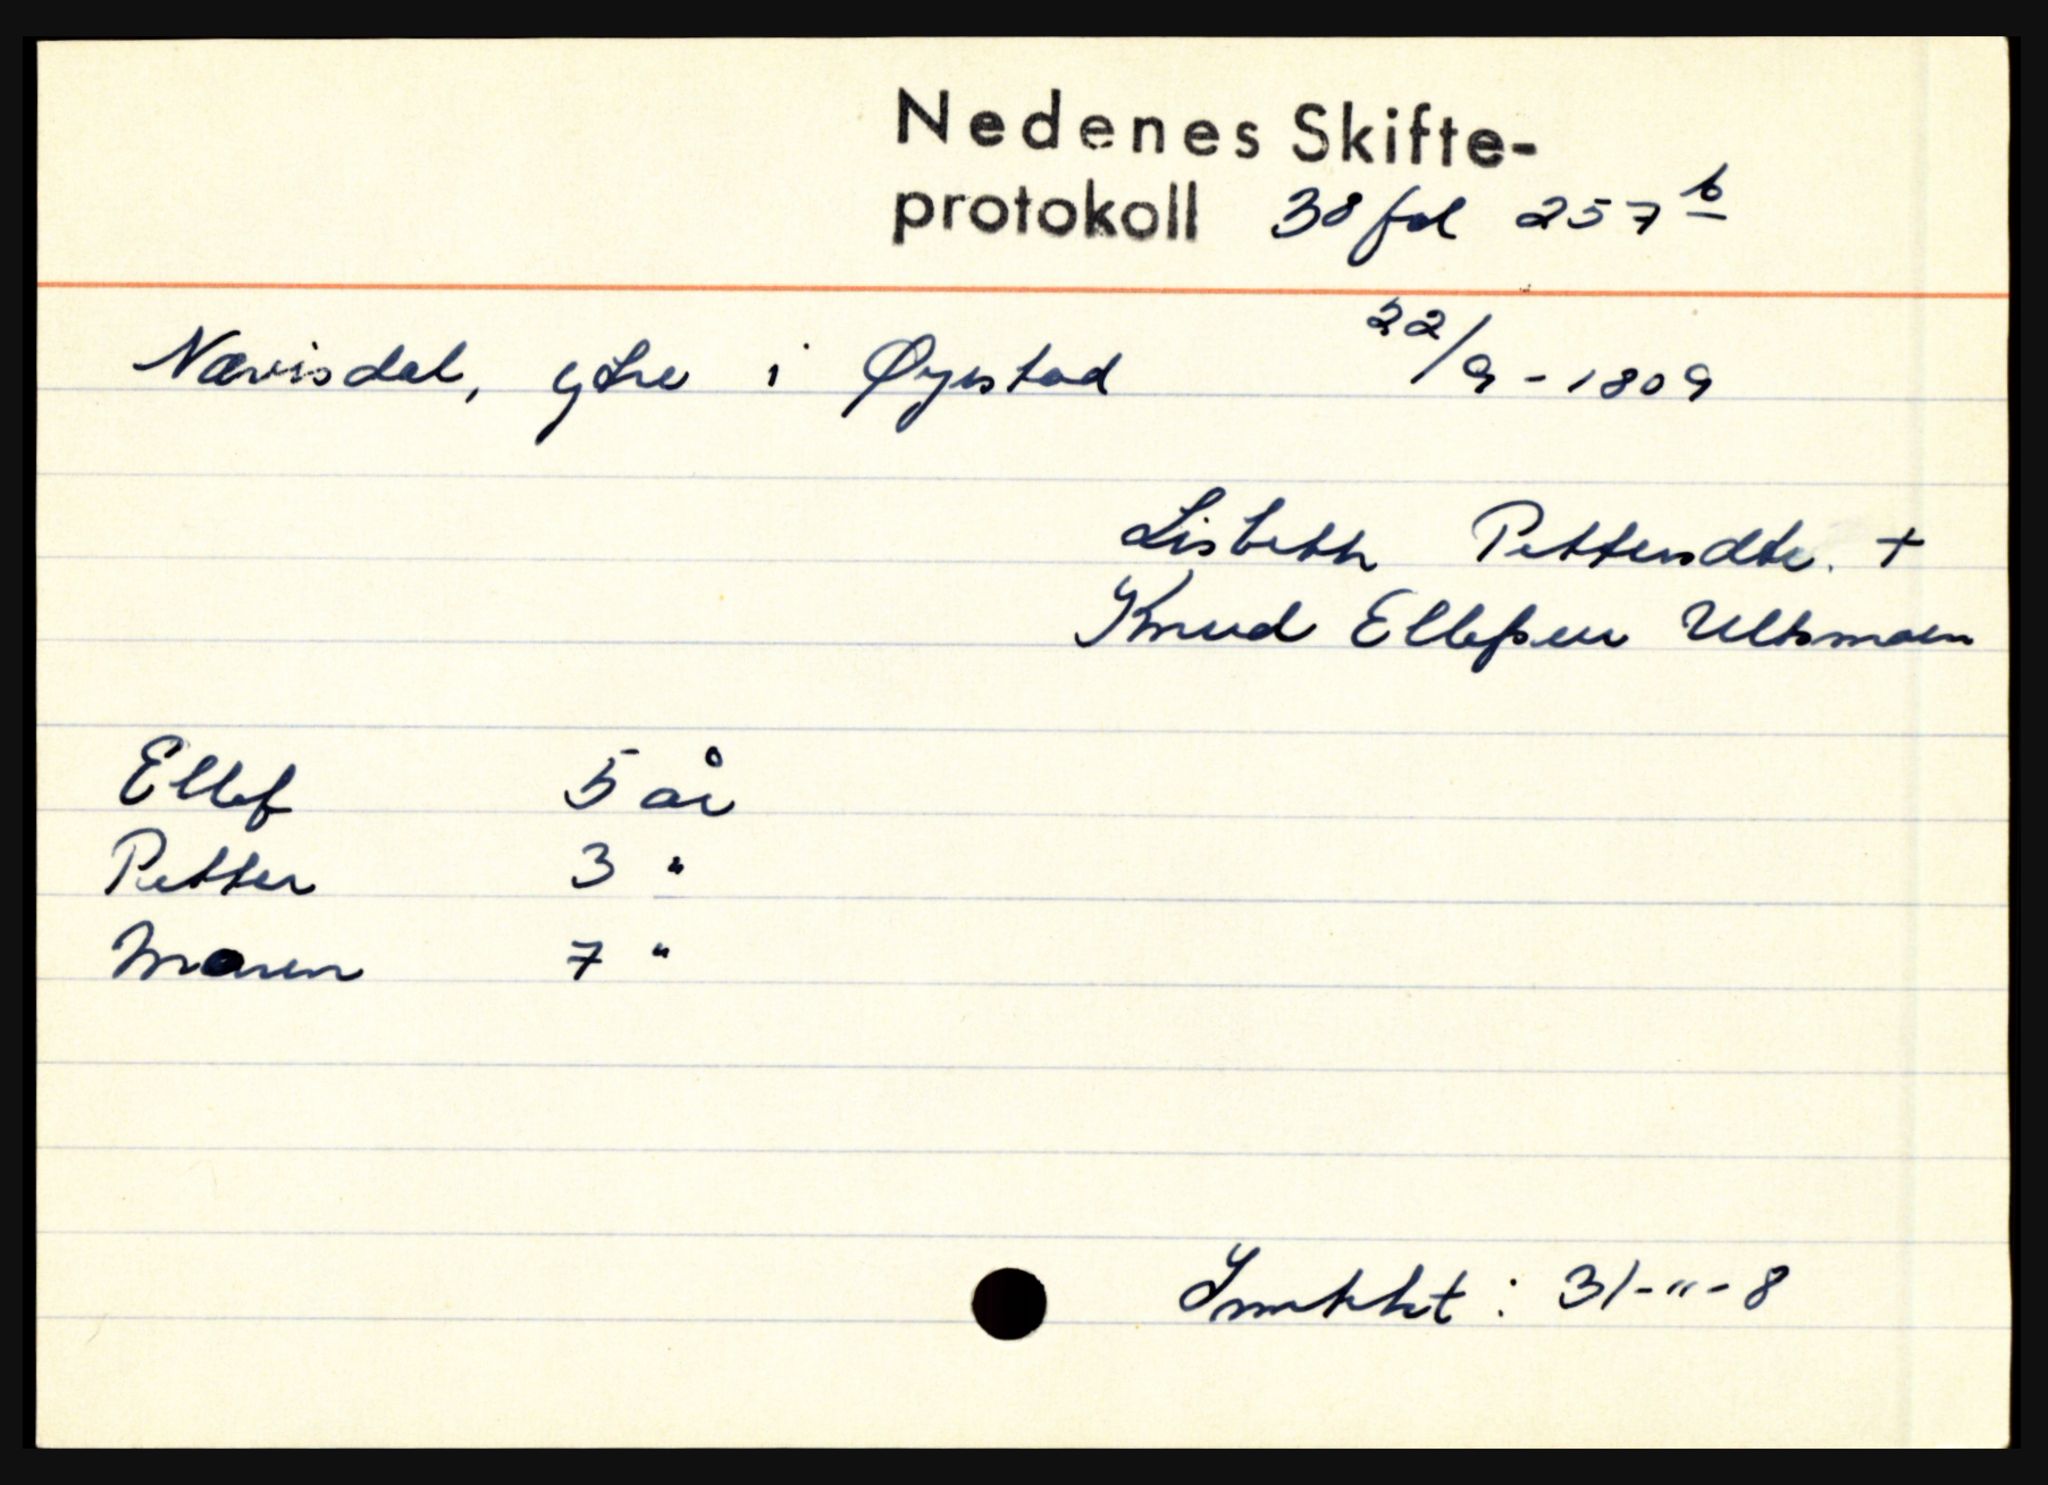 Nedenes Skifte-
protokoll 38 fol 257 b
Nævisdal, ytre i Øyestad 22/9 - 1809
Lisbeth Pettersdtr. +
Knud Ellefsen
Ellef 5 år
Petter 3 "
Maren 7 "
: 31-"-8